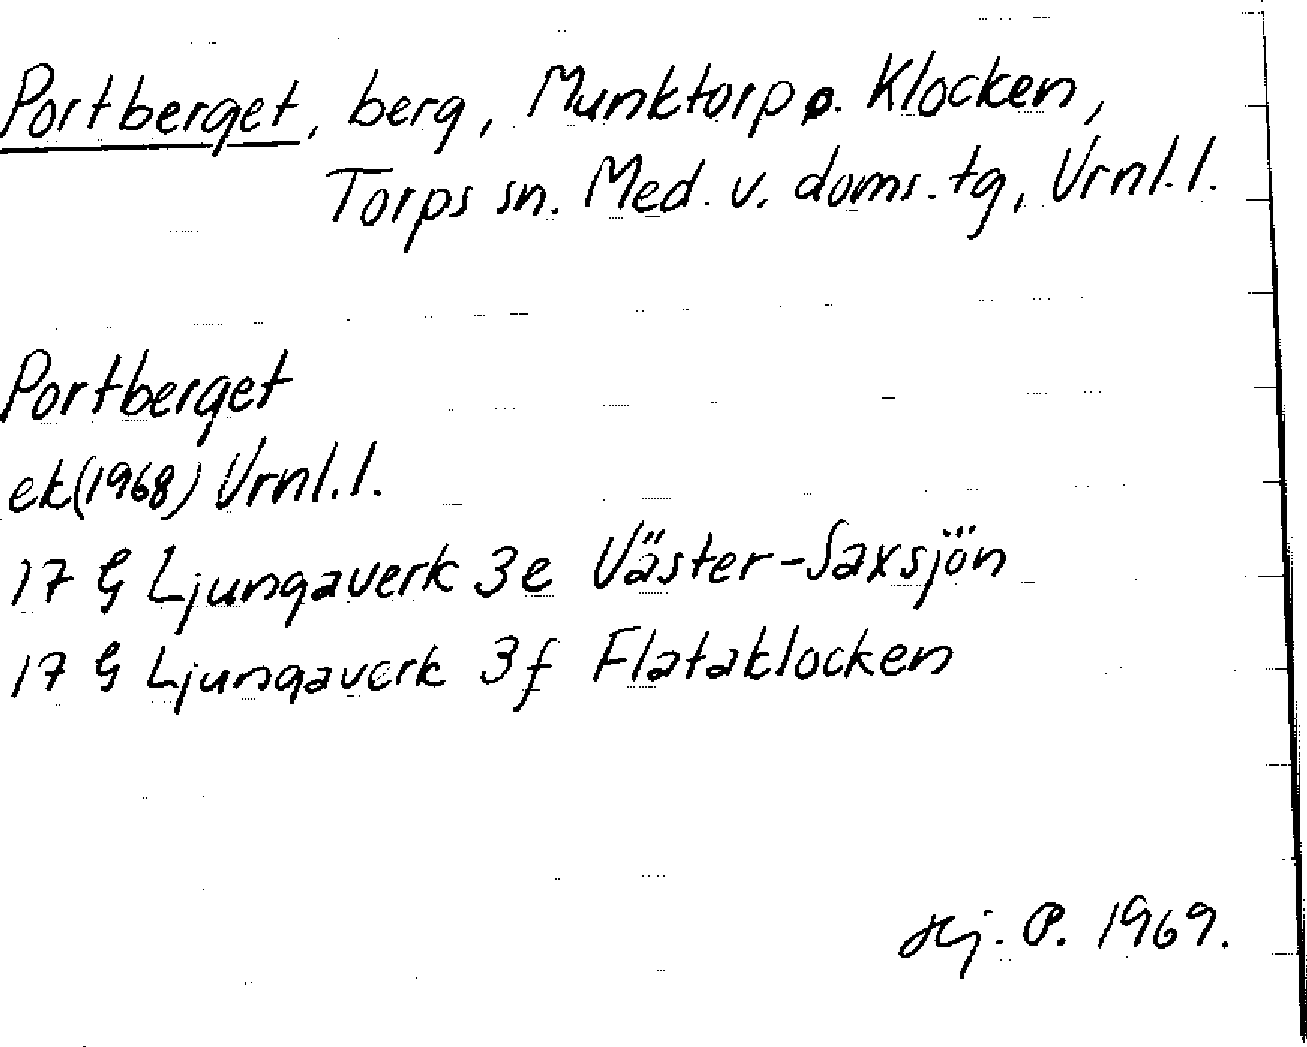 Portberget, berg, Munktorp o. Klocken,
Torps sn. Med. v. doms. tg, Vrnl. l.
Portberget
ek(1968) Vrnl. l.
17 G Ljungaverk 3e Väster-Saxsjön
17 G Ljungaverk 3f Flataklocken
Hj. P. 1969.